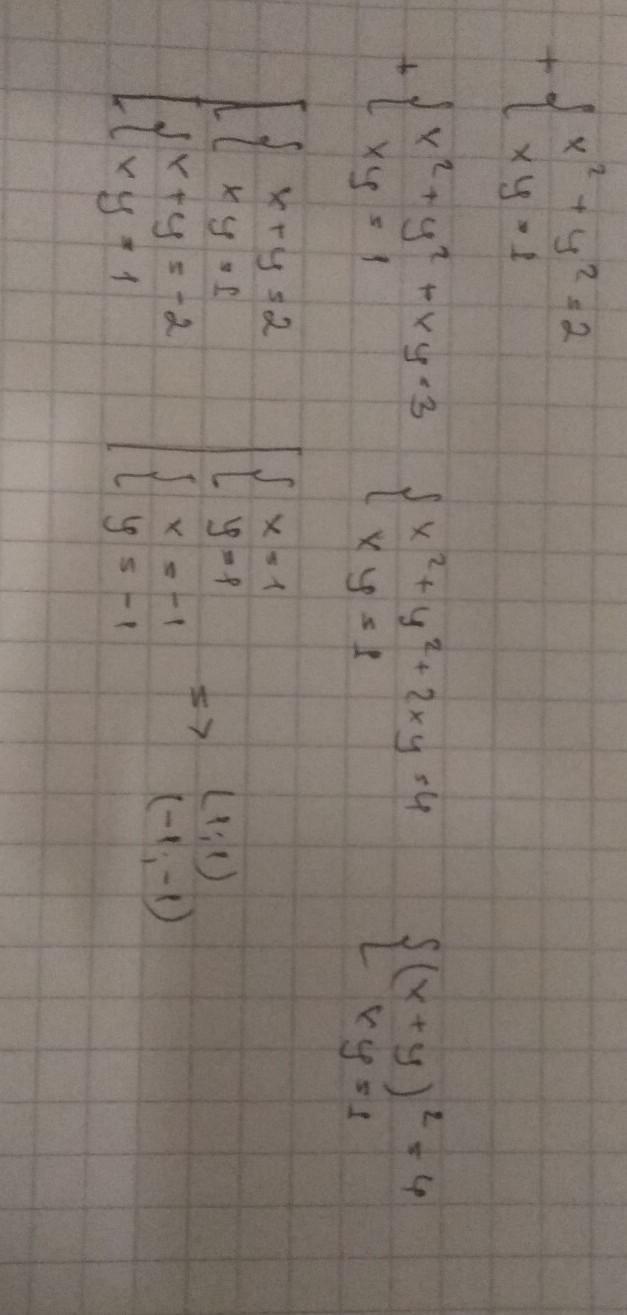 + { x² + y² = 2
xy = 1
+ { x² + y² + xy = 3
xy = 1
{ x² + y² + 2xy = 4
xy = 1
{ (x + y)² = 4
xy = 1
[ { x + y = 2
xy = 1
{ x + y = -2
xy = 1
[ { x = 1
y = 1
{ x = -1
y = -1
=> (1; 1)
(-1; -1)